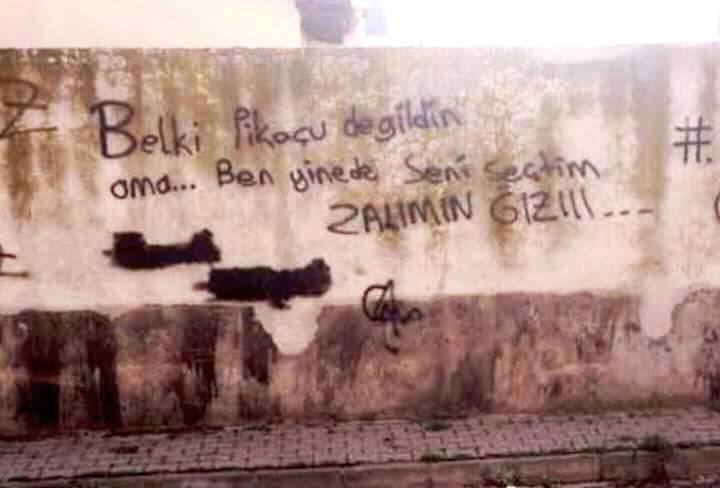 Belki Pikaçu degildin #.
ama... Ben yinede Seni Seçtim
ZALIMIN GIZIII...